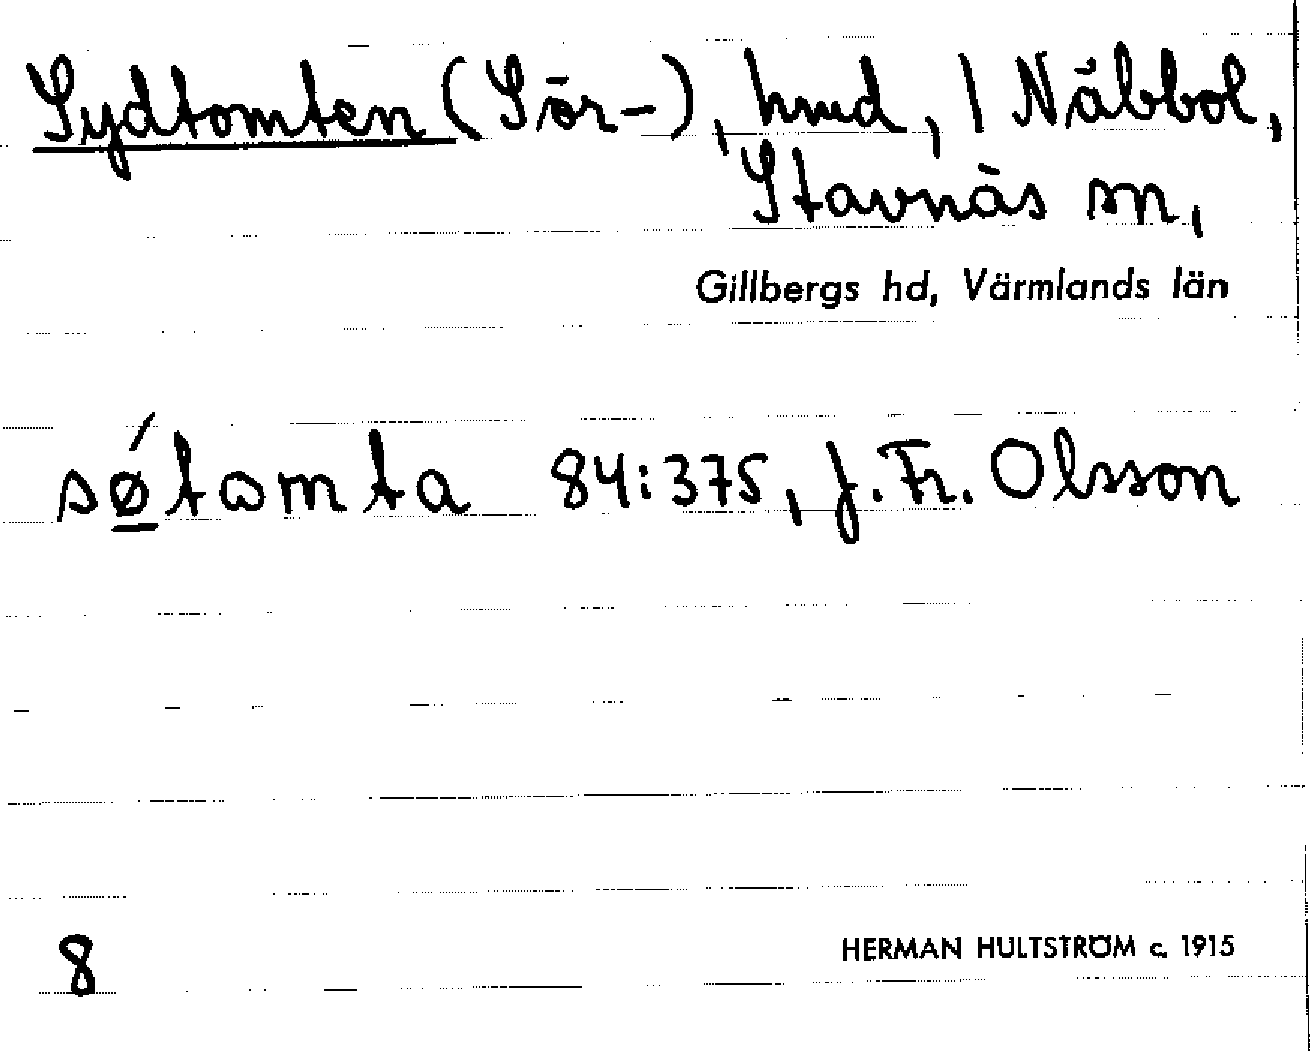 Sydtomten (Sör-), hmd, 1 Näbbol,
Stavnäs sn,
Gillbergs hd, Värmlands län
sǿtomta 84:375, J. Fr. Olsson
8
HERMAN HULTSTRÖM c. 1915